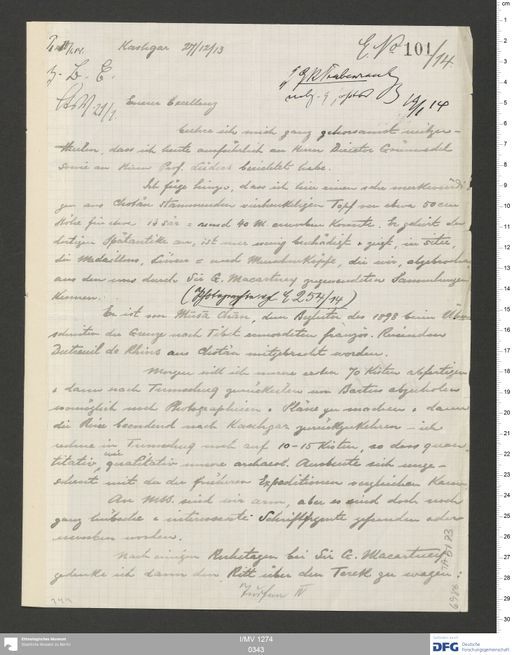 Kashgar 27/12/13
E. No 101/14.
z. L. E.
Euere Excellenz
beehre ich mich ganz gehorsamst mitzu-
theilen, dass ich heute ausführlich an Herrn Director Grünwedel
sowie an Herrn Prof. Lüders berichtet habe.
Ich füge hinzu, dass ich hier einen sehr merkwürdi-
gen aus Chotän stammenden Topf von etwa 50 cm
Höhe für den = rund 40 M. erwerben konnte. Er gehört der
dortigen Spätantike an, ist nur wenig beschädigt & zeigt, in situ,
die Medaillons, Löwen= und Menschenköpfe, die wir, abgebrochen
aus den uns durch Sir G. Macartney zugesandten Sammlungen
kennen. (Photographie auf E 252/14)
Es ist von Musa Chan, dem Begleiter des 1898 beim Über-
schreiten der Grenze nach Tibet ermordeten französ. Reisenden
Dutreuil de Rhins aus Chotän mitgebracht worden.
Morgen will ich meine ersten 70 Kisten abfertigen
& dann nach Tumschuq zurückkehren um Bartus abzuholen
womöglich noch Photographieen & Pläne zu machen & dann
die Reise beendend nach Kaschgar zurückzukehren - ich
rechne in Tumschuq noch auf 10-15 Kisten, so dass quan-
titativ, wie qualitativ unsere archaeol. Ausbeute sich unge-
scheut mit der der früheren Expeditionen vergleichen kann.
An MSS. sind wir arm, aber es sind doch noch
ganz hübsche & interessante Schriftfragmente gefunden oder
erworben worden.
Nach einigen Ruhetagen bei Sir G. Macartney
gedenke ich dann den Ritt über den Terek zu wagen:
I/MV 1274
0343
Ethnologisches Museum
Staatliche Museen zu Berlin
DFG Deutsche
Forschungsgemeinschaft